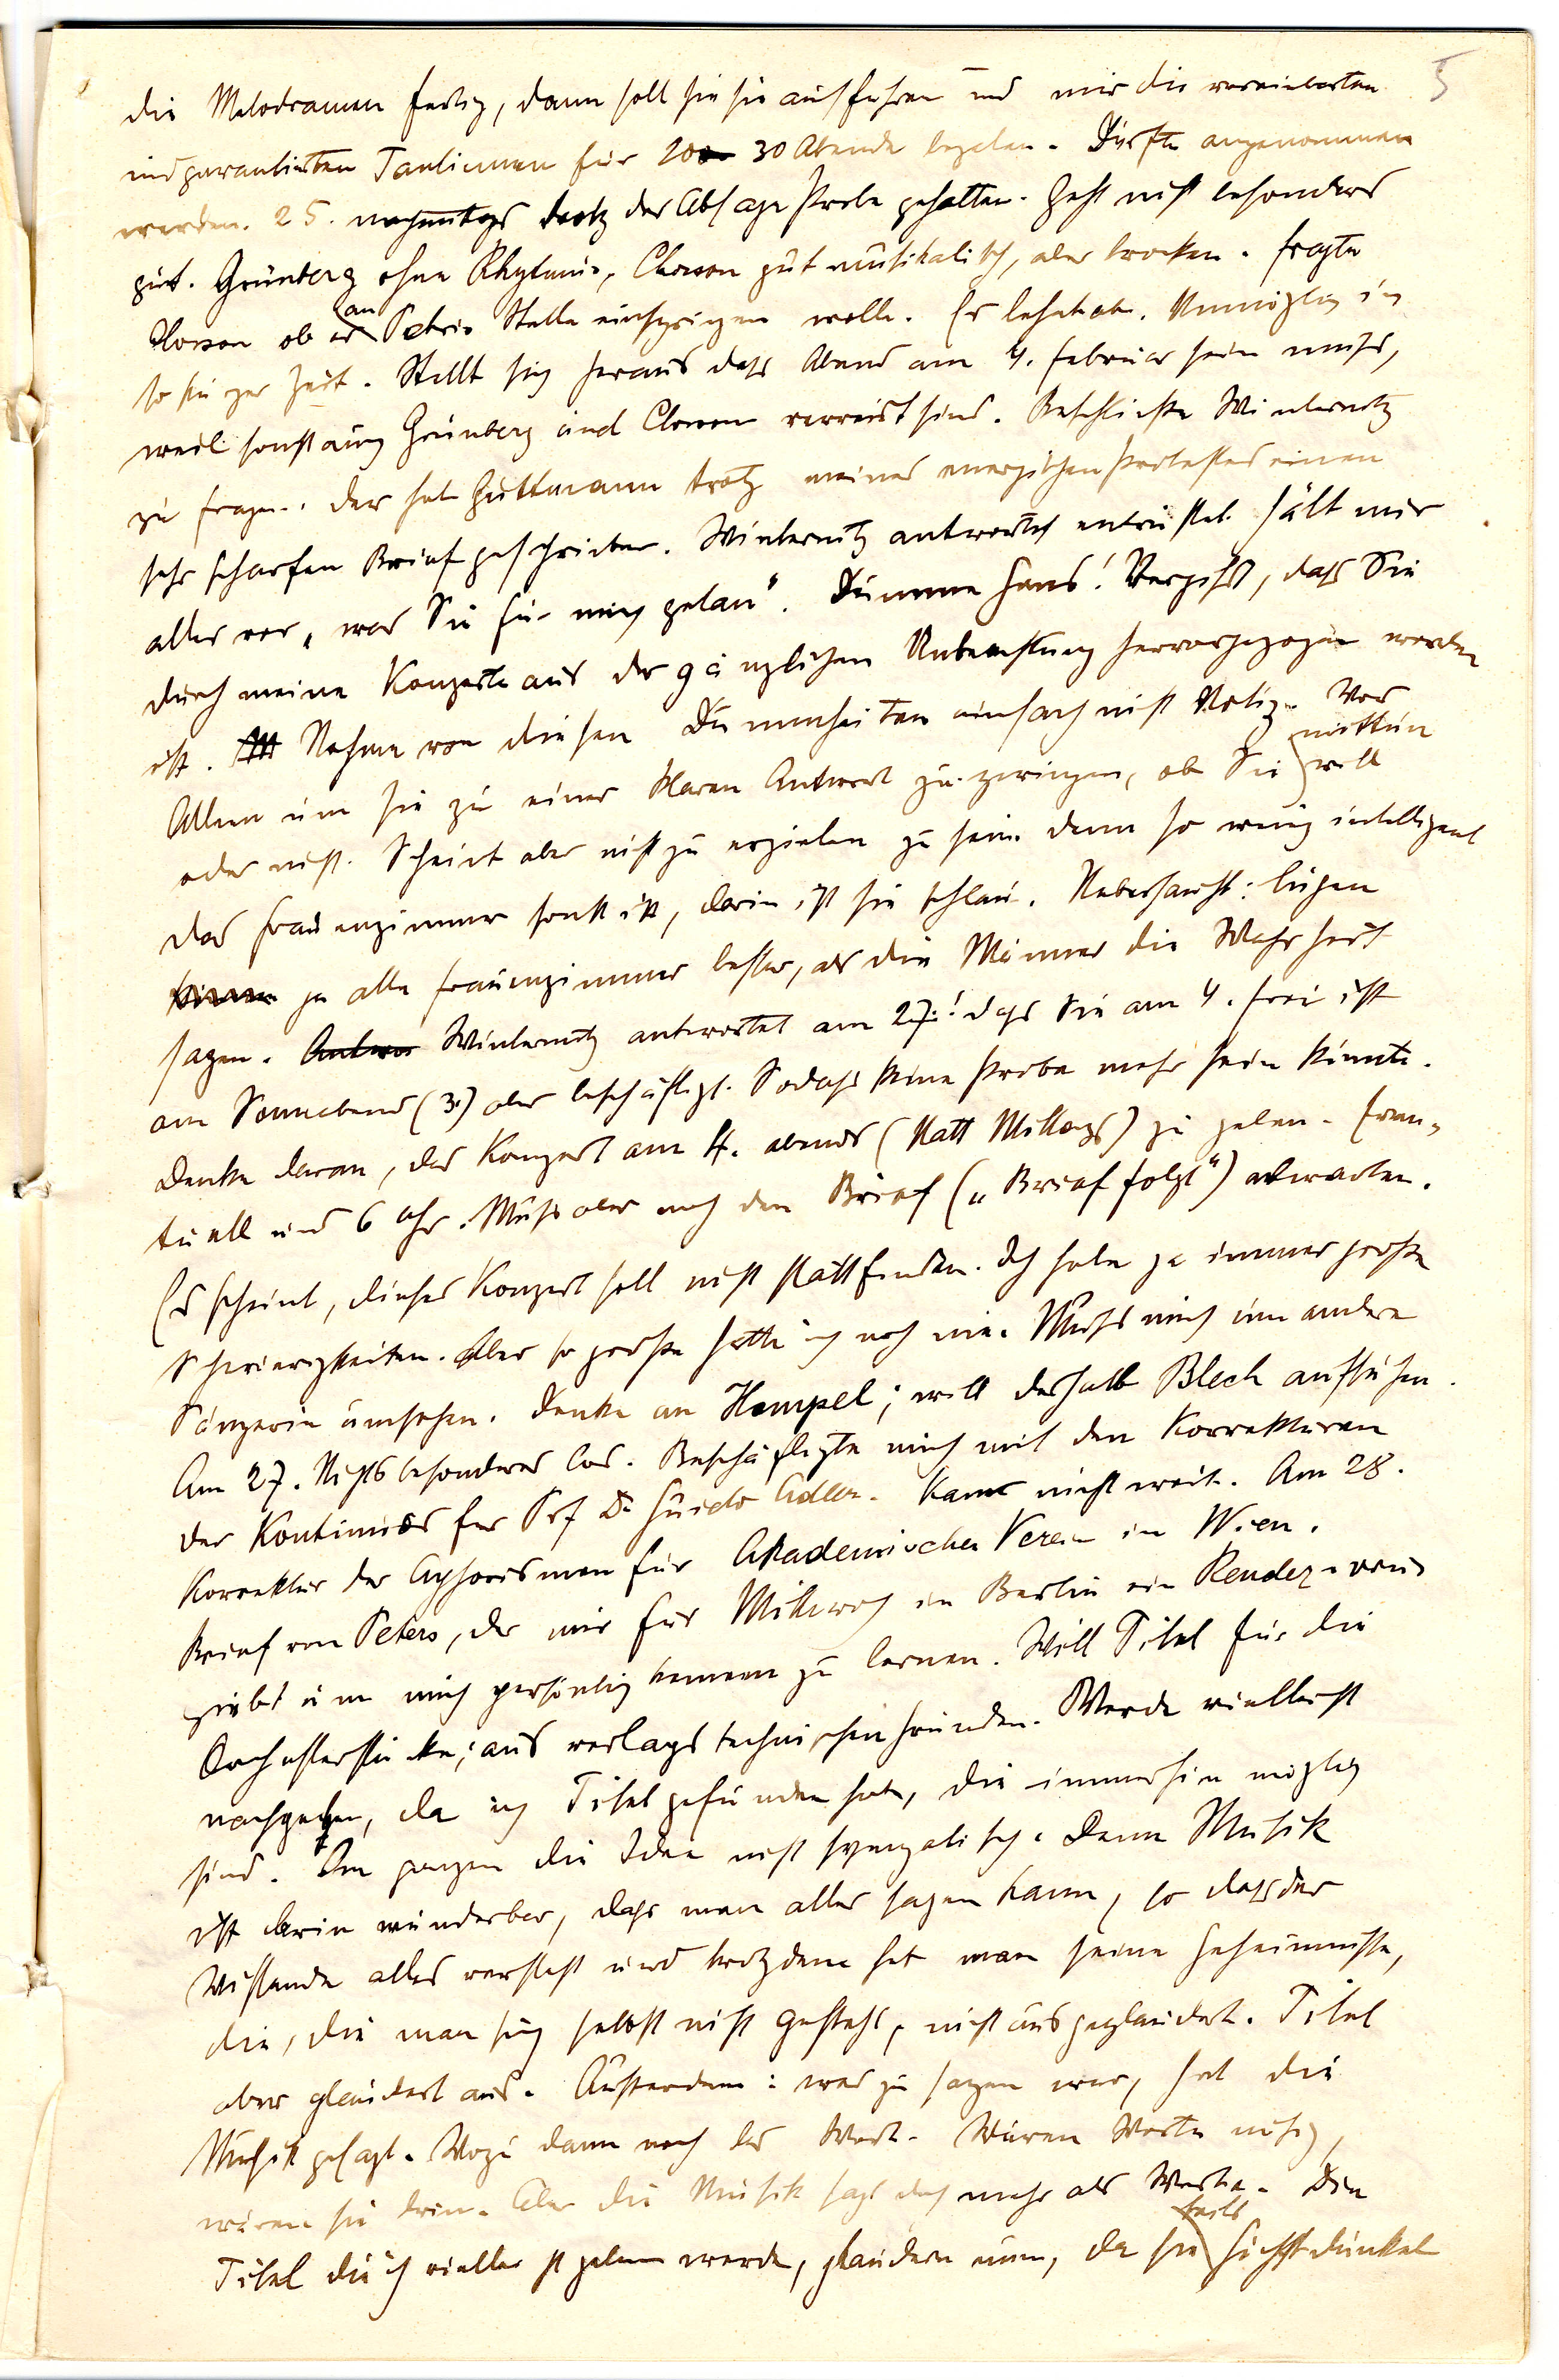 5
die Melodramen fertig, dann soll sie sie aufführen und mir die vereinbarten
und garantierten Tantiemen für 20 30 Abende bezalen. Dürfte angenommen
werden. 25. nachmittags trotz der Absage Probe gehalten. Geht nicht besonders
gut. Grünberg ohne Rhytmus, Closson gut musikalisch, aber trocken. Fragte
Closson ob er an Petris Stelle einspringen wolle. Er lehnt ab. Unmöglich in
so kurzer Zeit. Stellt sich heraus dass Abend am 4. Februar sein muss,
weil sonst auch Grünberg und Closson verreist sind. Beschließe Winternitz
zu fragen. Der hat Guttmann trotz meines energischen Protestes einen
sehr scharfen Brief geschrieben. Winternitz antwortet entrüstet. Hält mir
alles vor, „was Sie für mich getan". Dumme Gans! Vergisst, dass Sie
durch meine Konzerte aus der gänzlichen Unbeachtung hervorgezogen worden
ist. Nehme von diesen Dummheiten einfach nicht Notiz. Vor
Allem um sie zu einer klaren Antwort zu zwingen, ob Sie mittun will
oder nicht. Scheint aber nicht zu erzielen zu sein. denn so wenig intelligent
das Frauenzimmer sonst ist, darin ist sie schlau. Ueberhaupt: lügen
können ja alle Frauenzimmer besser, als die Männer die Wahrheit
sagen. Antwor Winternitz antwortet am 27.! dass Sie am 4. frei ist
am Sonnabend (3.) aber beschäftigt. Sodass keine Probe mehr sein könnte.
Denke daran, das Konzert am 4. abends (statt Mittags) zu geben. Even-
tuell um 6 Uhr. Muss aber noch den Brief („Brief folgt") abwarten.
Es scheint, dieses Konzert soll nicht stattfinden. Ich habe ja immer große
Schwierigkeiten. Aber so große hatte ich noch nie. Muss mich um andere
Sängerin umsehen. Denke an Hempel; will deshalb Blech aufsuchen.
Am 27. Nichts besonderes los. Beschäftigte mich mit den Korrekturen
der Kontinuos für Prof Dr Guido Adler. Kam nicht weit. Am 28.
Korrektur der Aphorismen für Akademischen Verein in Wien.
Brief von Peters, der mir für Mittwoch in Berlin ein Rendez-vous
giebt um mich persönlich kennen zu lernen. Will Titel für die
Orchesterstücke; aus verlagstechnischen Gründen. Werde vielleicht
nachgeben, da ich Titel gefunden habe, die immerhin möglich
sind. Im ganzen die Idee nicht sympatisch. Denn Musik
ist darin wunderbar, dass man alles sagen kann, so dass der
Wissende alles versteht und trotzdem hat man seine Geheimnisse,
die, die man sich selbst nicht gesteht, nicht ausgeplaudert. Titel
aber plaudert aus. Außerdem: was zu sagen war, hat die
Musik gesagt. Wozu dann noch das Wort. Wären Worte nötig,
wären sie drin. Aber die Musik sagt doch mehr als Worte. Die
Titel die ich vielleicht geben werde, plaudern nun, da sie teils höchst dunkel